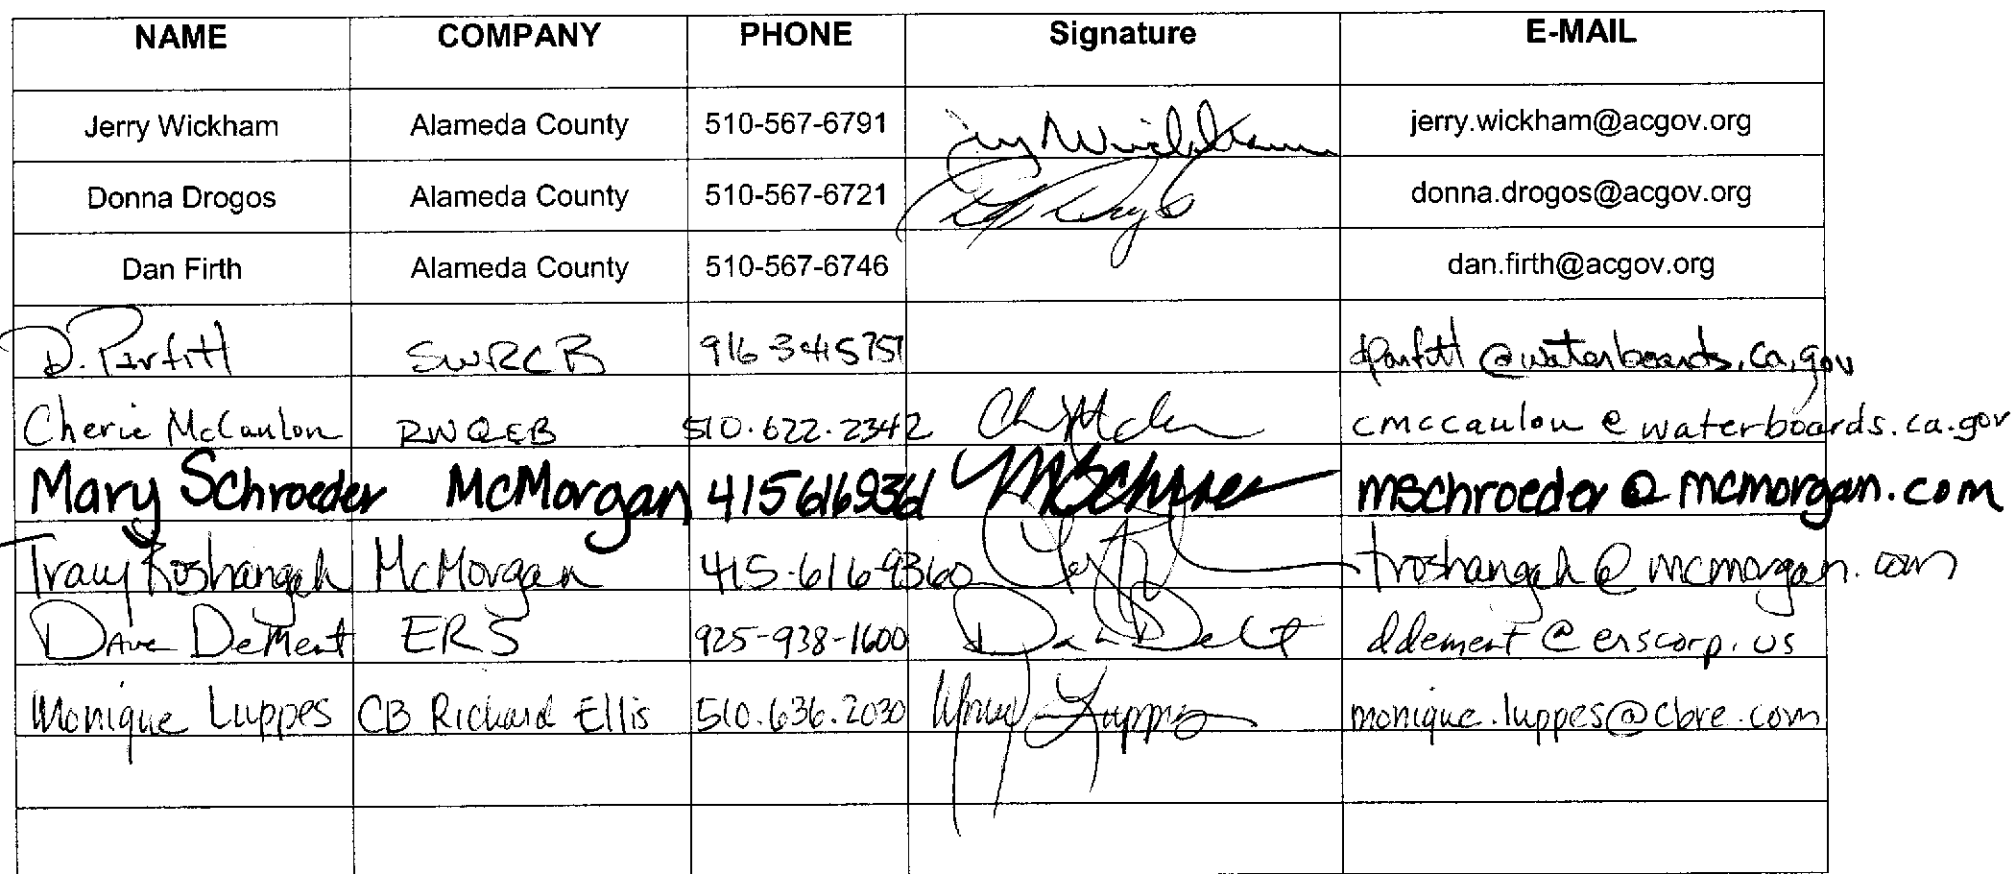 NAME COMPANY PHONE Signature E-MAIL
Jerry Wickham Alameda County 510-567-6791 jerry.wickham@acgov.org
Donna Drogos Alameda County 510-567-6721 donna.drogos@acgov.org
Dan Firth Alameda County 510-567-6746 dan.firth@acgov.org
D. Parfitt SWRCB 916 3415751 dparfitt@waterboards.ca.gov
Cherie McCaulou RWQCB 510.622.2342 cmccaulou@waterboards.ca.gov
Mary Schroeder McMorgan mschroeder@mcmorgan.com
Tracy Roshangah McMorgan 415-616-9360 troshangah@mcmorgan.com
Dave DeMent ERS 925-938-1600 ddement@erscorp.us
Monique Luppes CB Richard Ellis 510.636.2030 monique.luppes@cbre.com